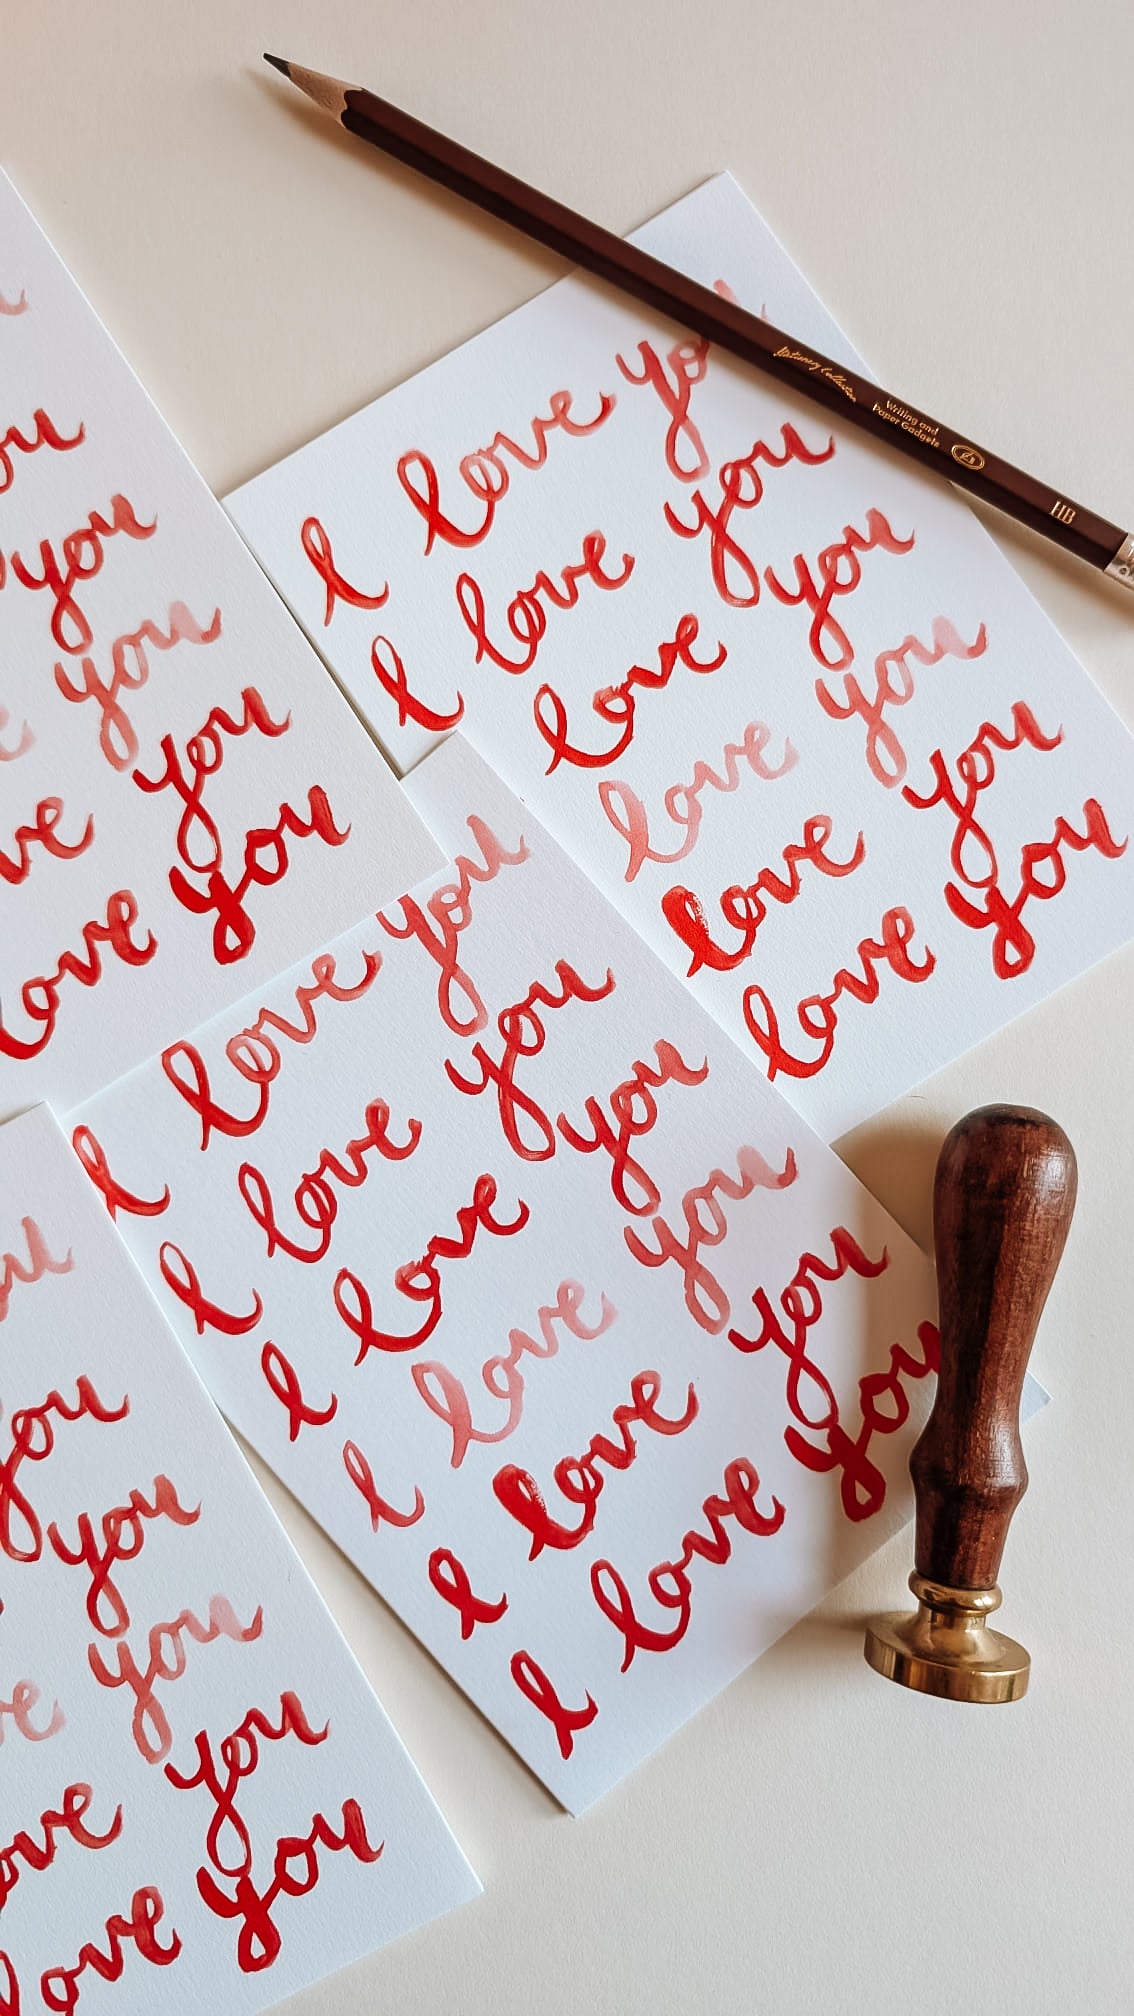 Stationery Collection
Writing and
Paper Gadgets
HB
you
you
you
you
love you
I love yo
I love you
love you
love you
love you
love you
I love you
I love you
I love you
I love you
I love you
I love you
you
you
you
ove you
love you